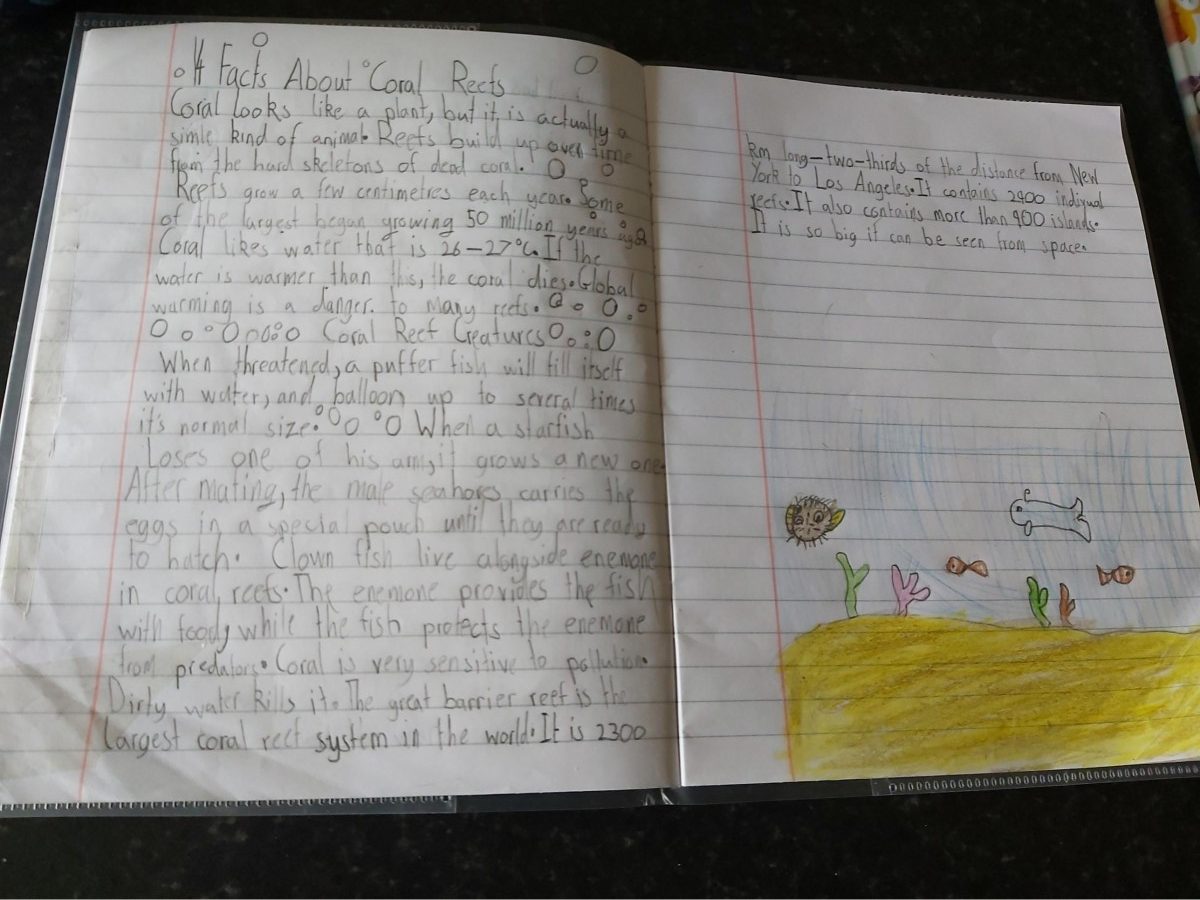 Facts About Coral Reefs
Coral looks like a plant, but it is actually a
simle kind of animal. Reefs build up over time
from the hard skeletons of dead coral.
Reefs grow a few centimetres each year. Some
of the largest began growing 50 million years ago
Coral likes water that is 26-27°C. If the
water is warmer than this, the coral dies. Global
warming is a danger. to many reefs.
Coral Reef Creatures
When threatened, a puffer fish will fill itself
with water, and balloon up to several times
it's normal size. When a starfish
Loses one of his arm, it grows a new one.
After mating, the male seahores carries the
eggs in a special pouch until they are ready
to hatch. Clown fish live alongside enemone
in coral reefs. The enemone provides the fish
with food, while the fish protects the enemone
from predators. Coral is very sensitive to pollution.
Dirty water kills it. The great barrier reef is the
Largest coral reef system in the world. It is 2300
km long-two-thirds of the distance from New
York to Los Angeles. It contains 2900 indivual
reefs. It also contains more than 900 islands.
It is so big it can be seen from space.